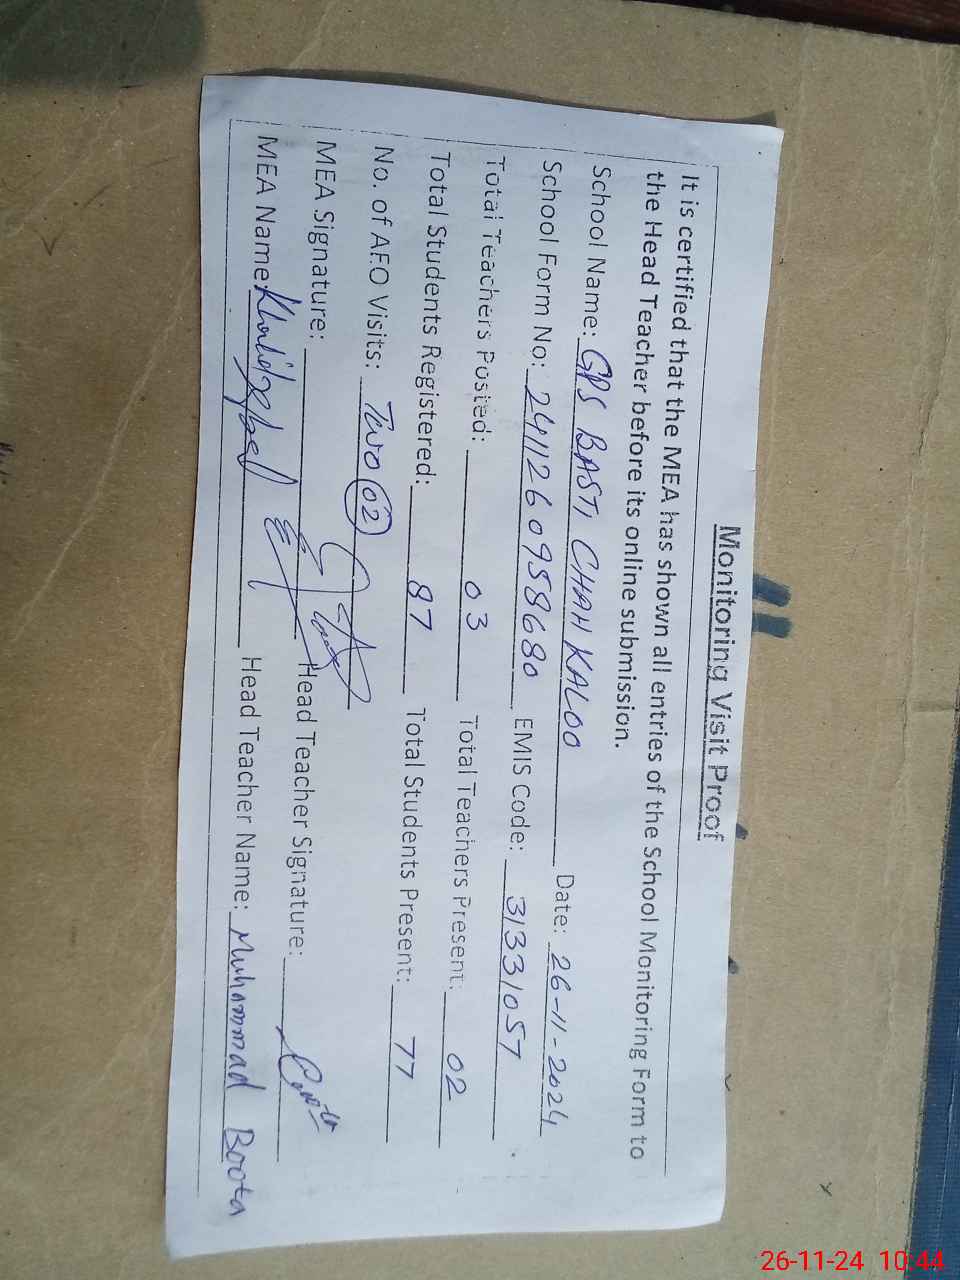 Monitoring Visit Proof
It is certified that the MEA has shown all entries of the School Monitoring Form to
the Head Teacher before its online submission.
School Name: GPS BASTI CHAH KALOO Date: 26-11-2024
School Form No: 241126 0958680 EMIS Code: 31331057
Total Teachers Posted: 03 Total Teachers Present: 02
Total Students Registered: 87 Total Students Present: 77
No. of AEO Visits: Two 02
MEA Signature: Head Teacher Signature:
MEA Name: Khalid Iqbal Head Teacher Name: Muhammad Boota
26-11-24 10:44